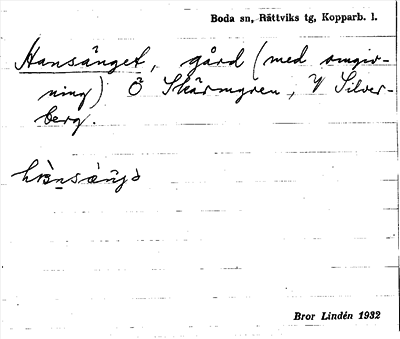 Boda sn, Rättviks tg, Kopparb. l.
Hansänget, gård (med omgiv-
ning) Ö Skärmgren, V Silver-
berg.
Bror Lindén 1932